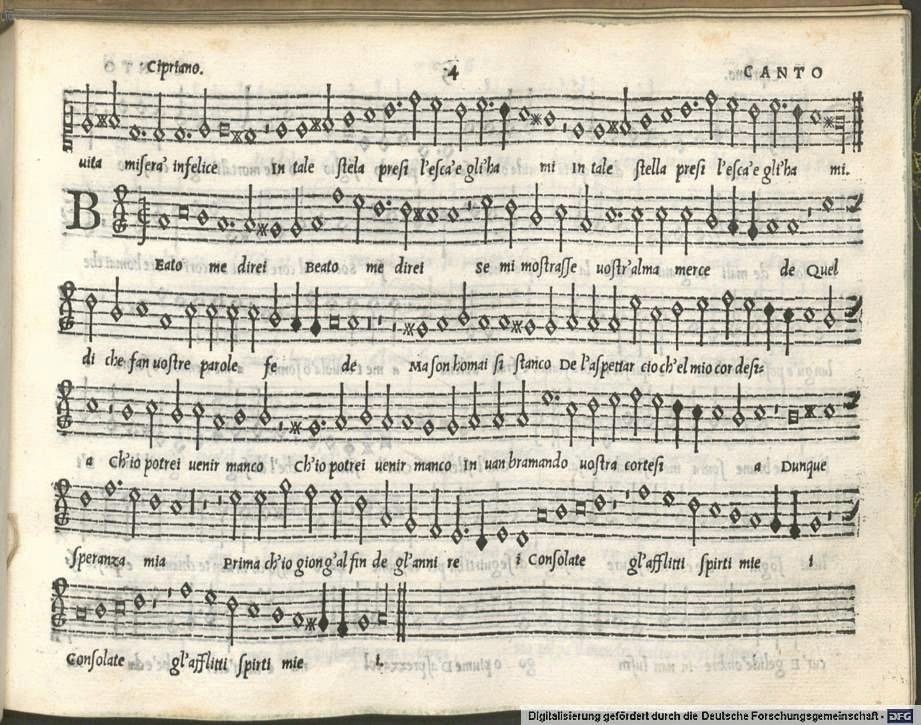 Cipriano. 4 CANTO
uita misera' infelice In tale stela presi l'esca'e gli'ha mi In tale stella presi l'esca'e gli'ha mi.
BEato me direi Beato me direi Se mi mostrasse uostr'alma merce de Quel
di che fan uostre parole fe de Ma son homai si stanco De l'aspettar cio ch'el mio cor desi-
a Ch'io potrei uenir manco Ch'io potrei uenir manco In uan bramando uostra cortesi a Dunque
speranza mia Prima ch'io giong'al fin de gl'anni re i Consolate gl'afflitti spirti mie i
Consolate gl'afflitti spirti mie i.
Digitalisierung gefördert durch die Deutsche Forschungsgemeinschaft - DFG